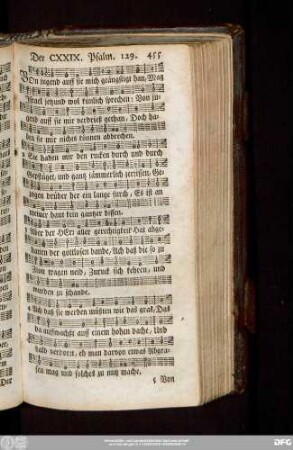 Der CXXIX. Psalm. 129. 455
VOn jugend auff sie mich geängstigt han, Mag
Israel jetzund wol kintlich sprechen: Von ju-
gend auff sie mir verdrieß gethan, Doch ha-
ben sie mir nichts können abbrechen.
2 Sie haben mir den rucken durch und durch
Gepflüget, und gantz jämmerlich zerrissen, Ge-
zogen drüber her ein lange furch, Es ist an
meiner haut kein gantzer bissen.
3 Aber der HErr aller gerechtigkeit Hat abge-
hauen der gottlosen bande, Ach daß die so zu
Zion tragen neid, Zuruck sich kehren, und
wurden zu schande.
4 Ach daß sie werden müßten wie das graß, Das
da auffwachst auff einem hohen dache, Und
bald verdorrt, eh man darvon etwas Abgra-
sen mag und solches zu nutz mache.
5 Von
Der
DFG